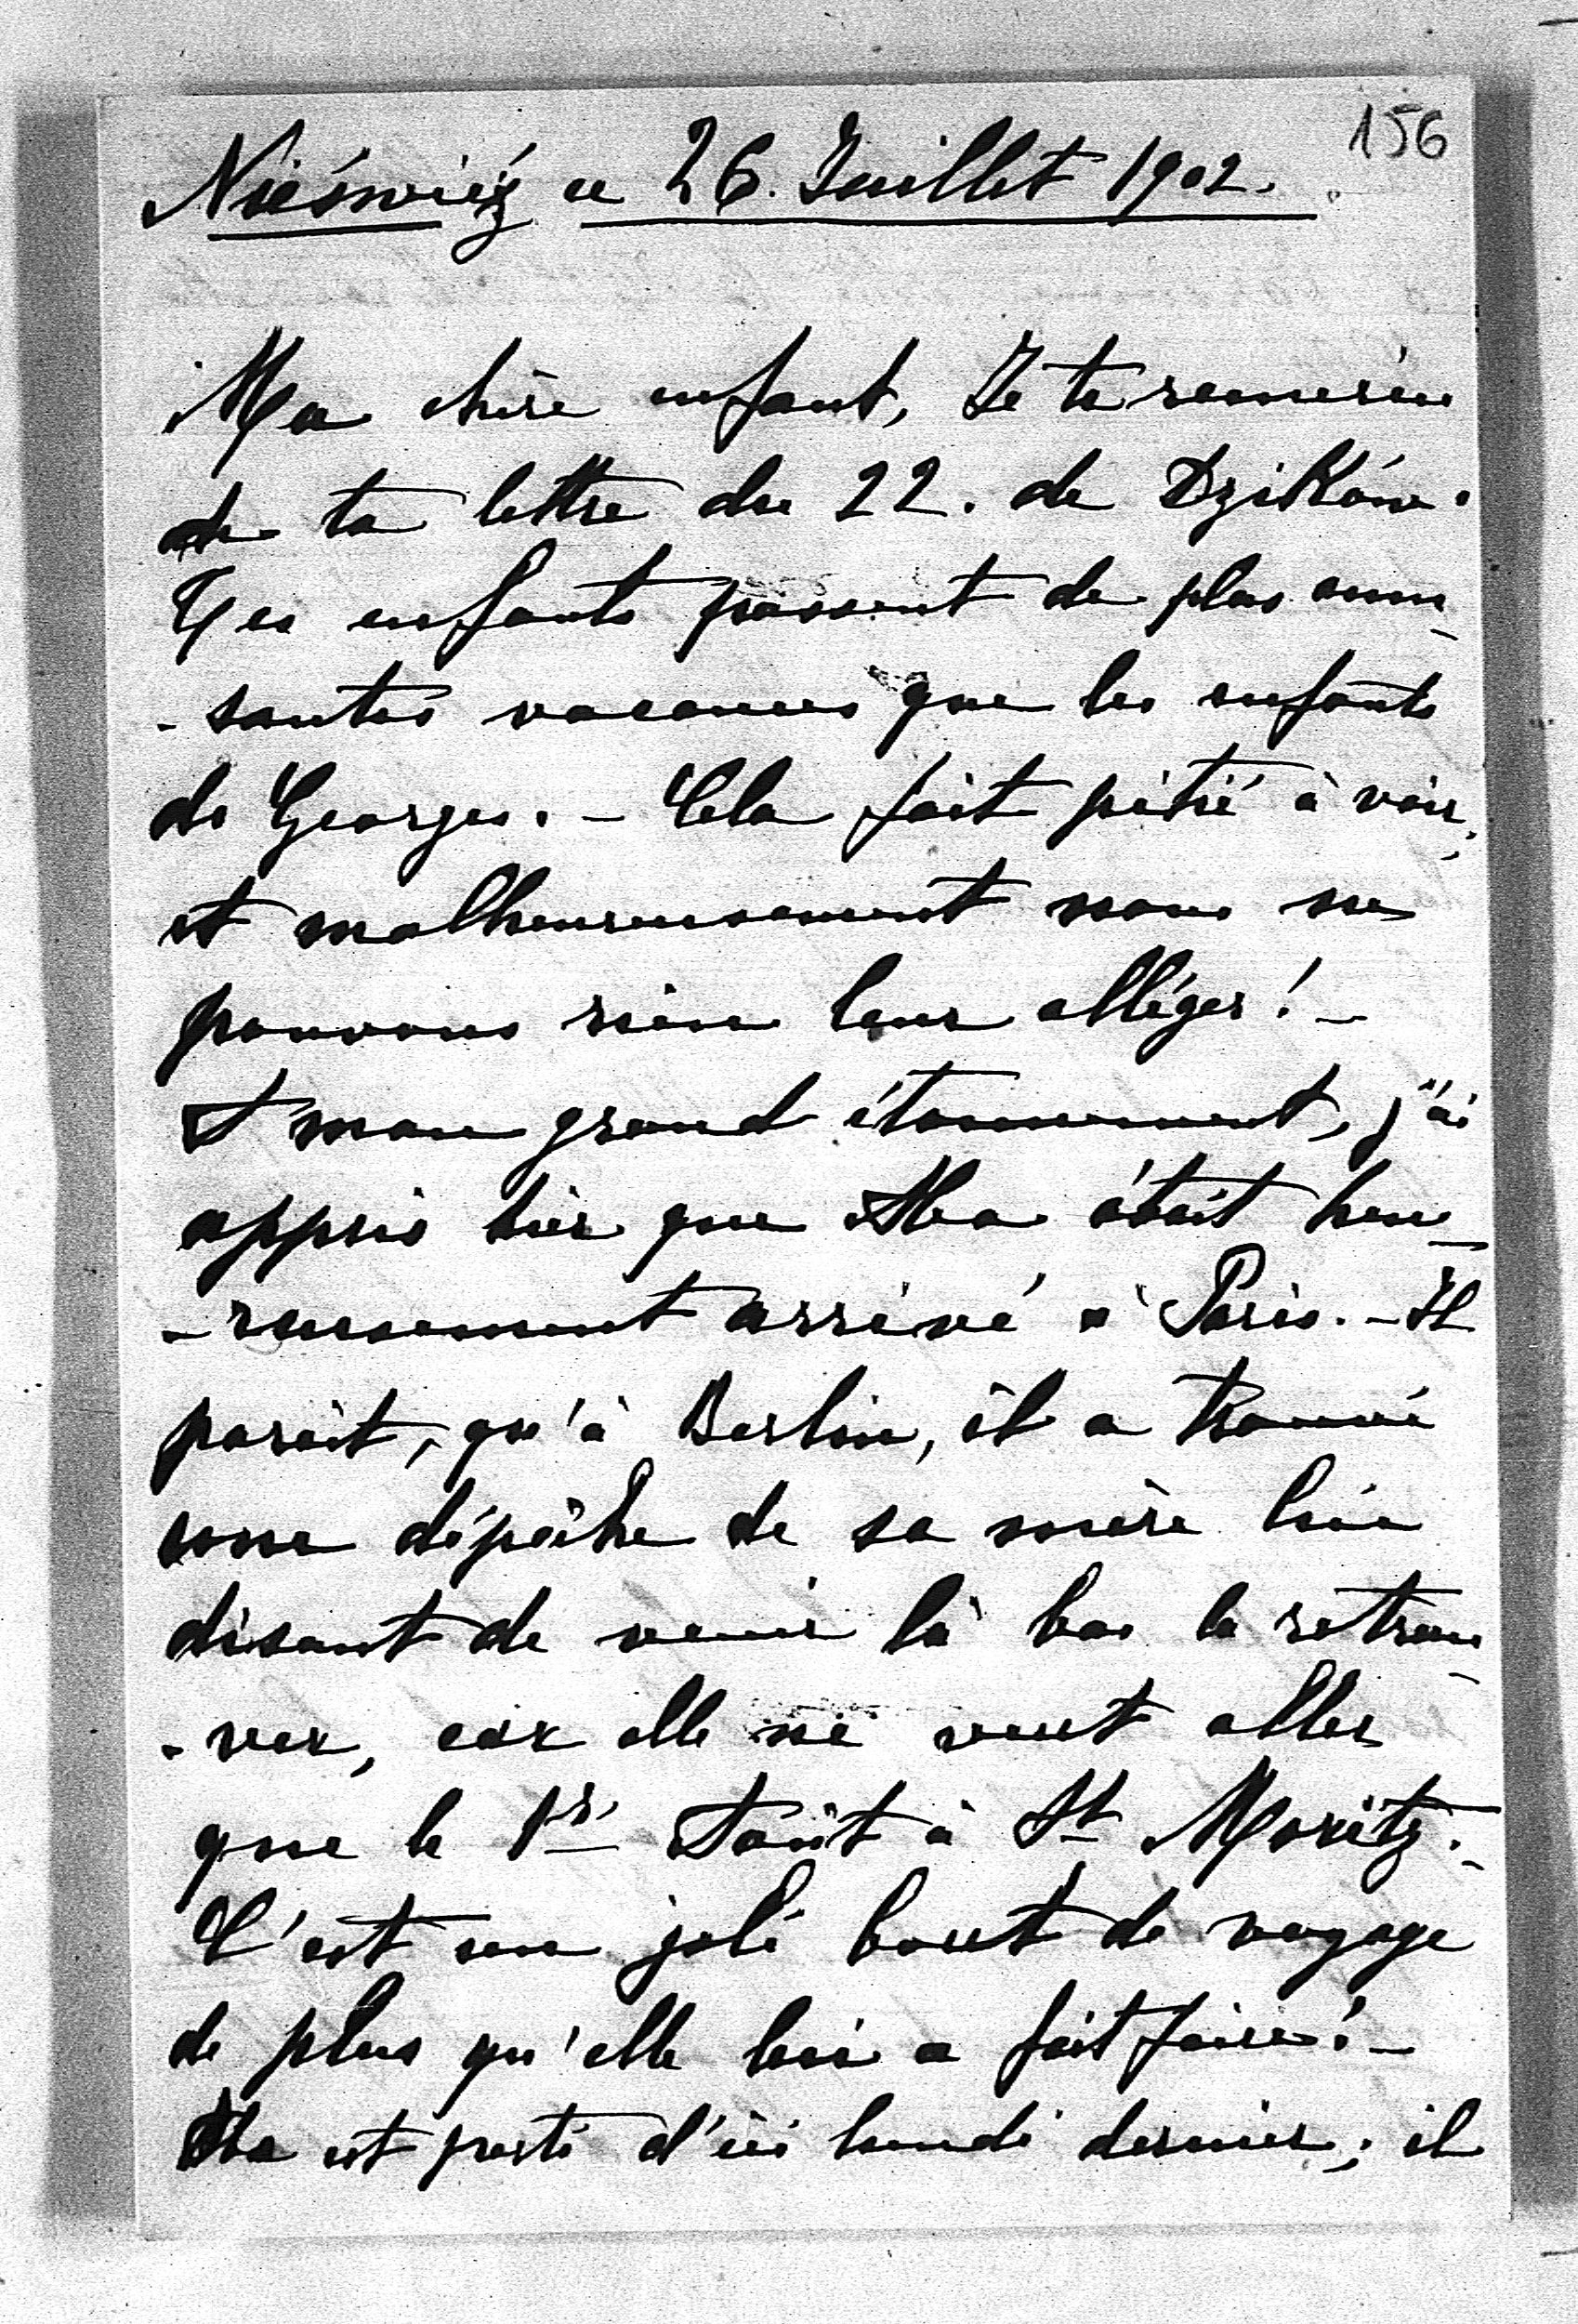 156
Nieśwież ce 26. Juillet 1902.
Ma chère enfant, Je te remercie
de ta lettre du 22. de Dzików.
Tes enfants passent de plus amu-
-santes vacances que les enfants
de Georges. - Cela fait pitié à voir,
et malheureusement nous ne
pouvons rien leur alléger! -
A mon grand étonnement, j'ai
appris hier que Aba était heu-
-reusement arrivé à Paris. - Il
parait, qu'à Berlin, il a trouvé
une dépêche de sa mère lui
disant de venir là bas la retrou-
-ver, car elle ne veut aller
que le 1r Août à St Moritz. -
C'est un joli bout de voyage
de plus qu'elle lui a fait faire! -
Aba est parti d'ici lundi dernier; il